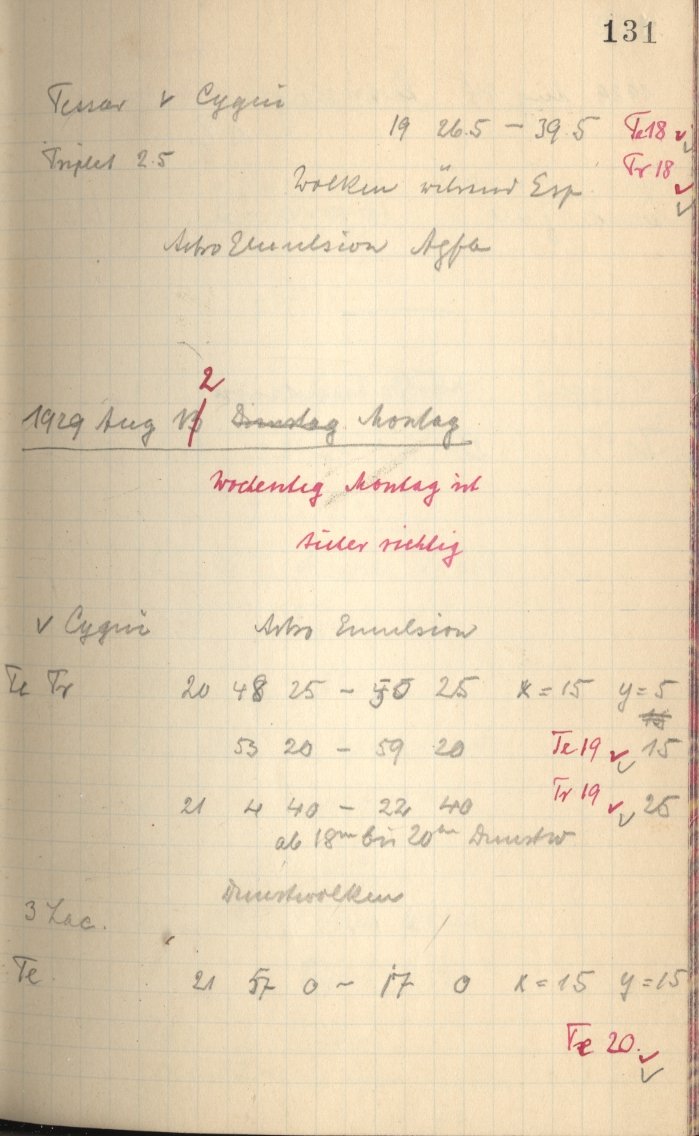 131
Tessar ν Cygni
19 26.5 – 39.5 Te 18 ✓
Triplet 2.5 Tr 18 ✓
Wolken während Exp.
Astro Emulsion Agfa
2
1929 Aug 13 Dienstag Montag
Wochentag Montag ist
sicher richtig
ν Cygni Astro Emulsion
Te Tr 20 48 25 – 50 25 x = 15 y = 5
15
53 20 – 59 20 Te 19 ✓ 15
21 4 40 – 22 40 Tr 19 ✓ 25
ab 18m bis 20m Dunstw
Dunstwolken
3 Lac.
Te 21 57 0 – 17 0 x = 15 y = 15
Te 20. ✓